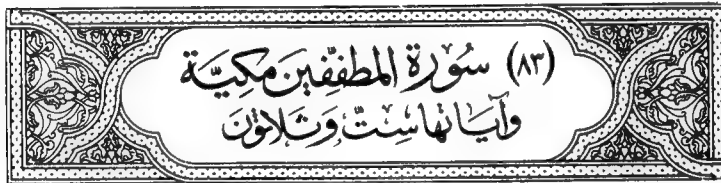 (٨٣) سُورَة المطفّفِين مكيّة
وآيَاتها سِتّ وَثلاثونَ